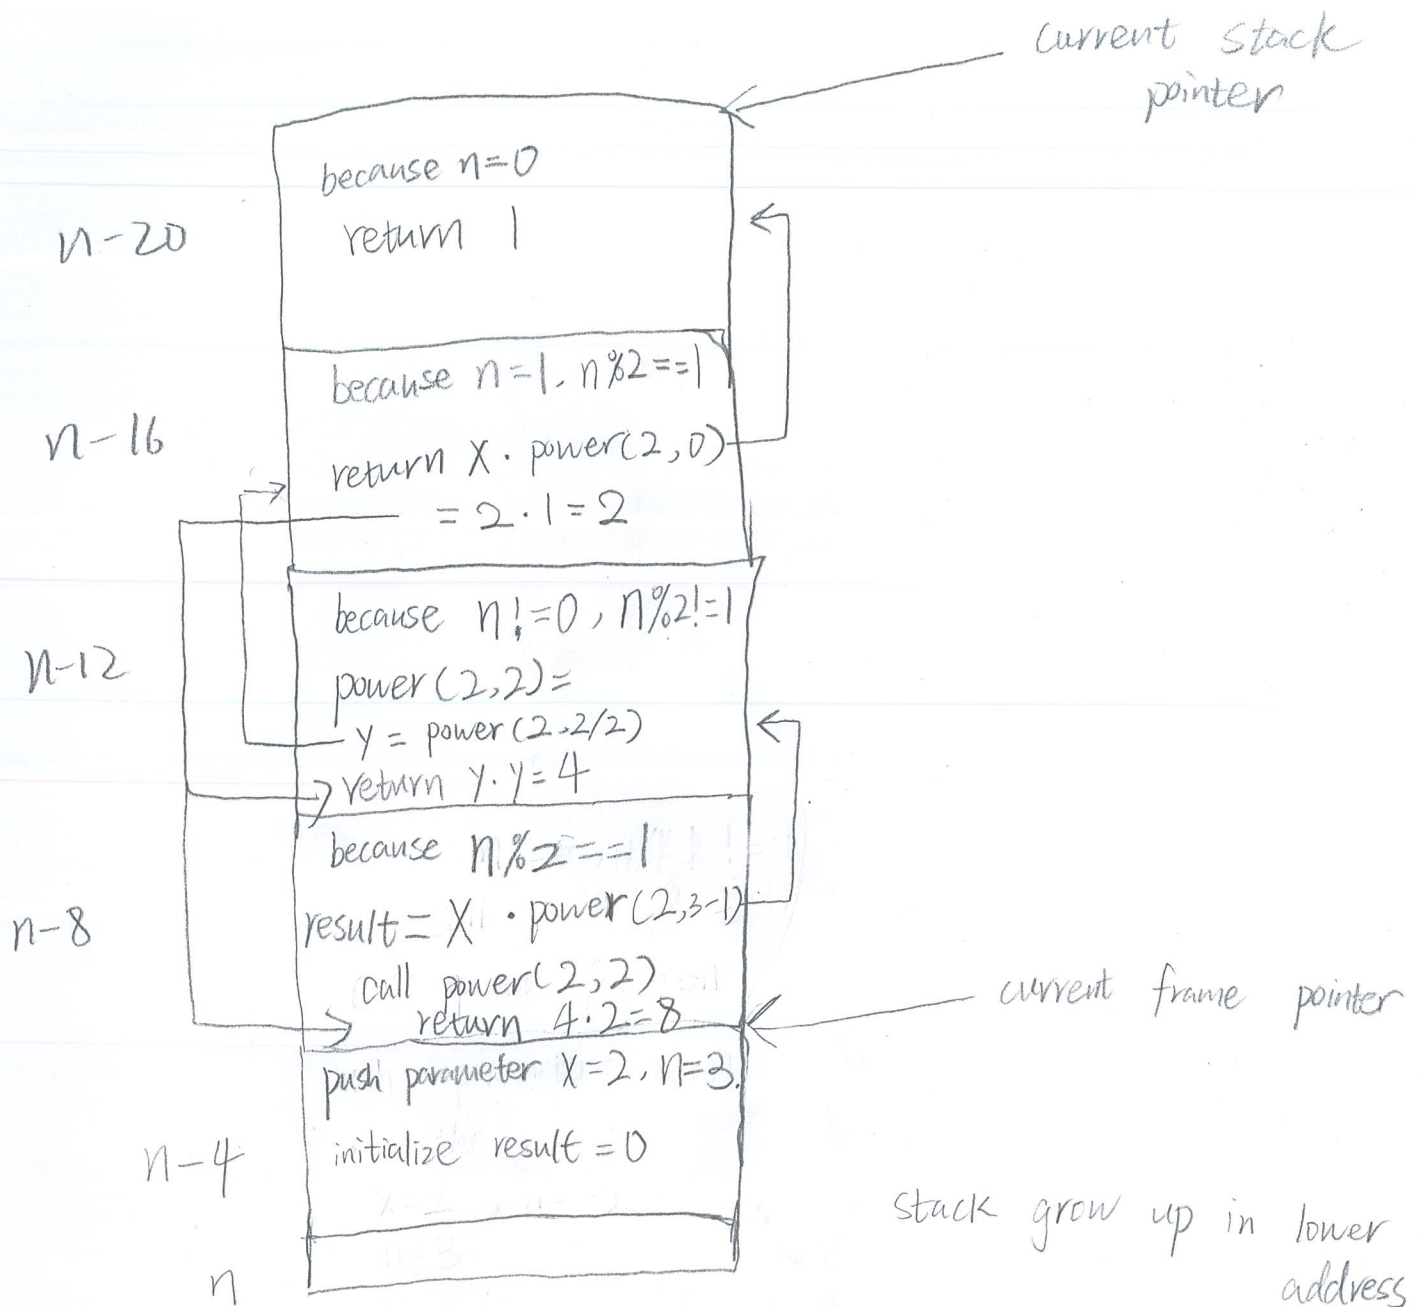 current stack
pointer
because n=0
n-20
return 1
because n=1, n%2==1
n-16
return X · power(2,0)
= 2·1=2
because n!=0, n%2!=1
n-12
power(2,2)=
y = power(2,2/2)
return y·y=4
because n%2==1
n-8
result= X · power(2,3-1)
call power(2,2)
current frame pointer
return 4·2=8
push parameter X=2, n=3.
n-4
initialize result=0
stack grow up in lower
address
n